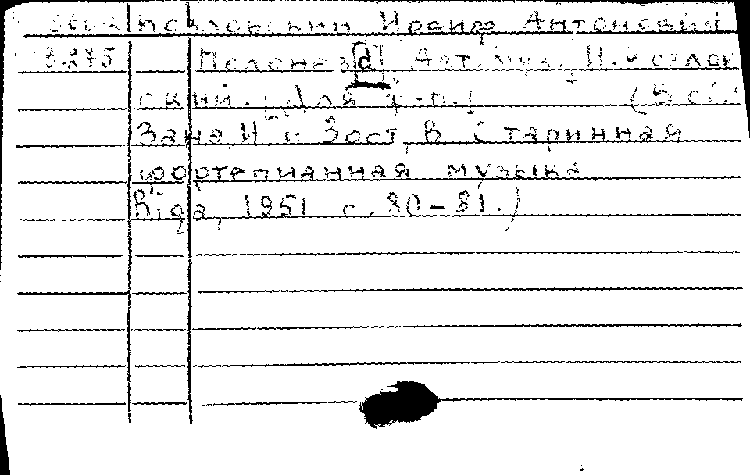 Козловский Иосиф Антонович
3.275 Полонез [d] Авт. муз. И. Козлов
ский. [Для ф-п.] (В сб.:
Зане, И. и Зост, В. Старинная
фортепианная музыка
Rīga, 1951 с. 80-81.)